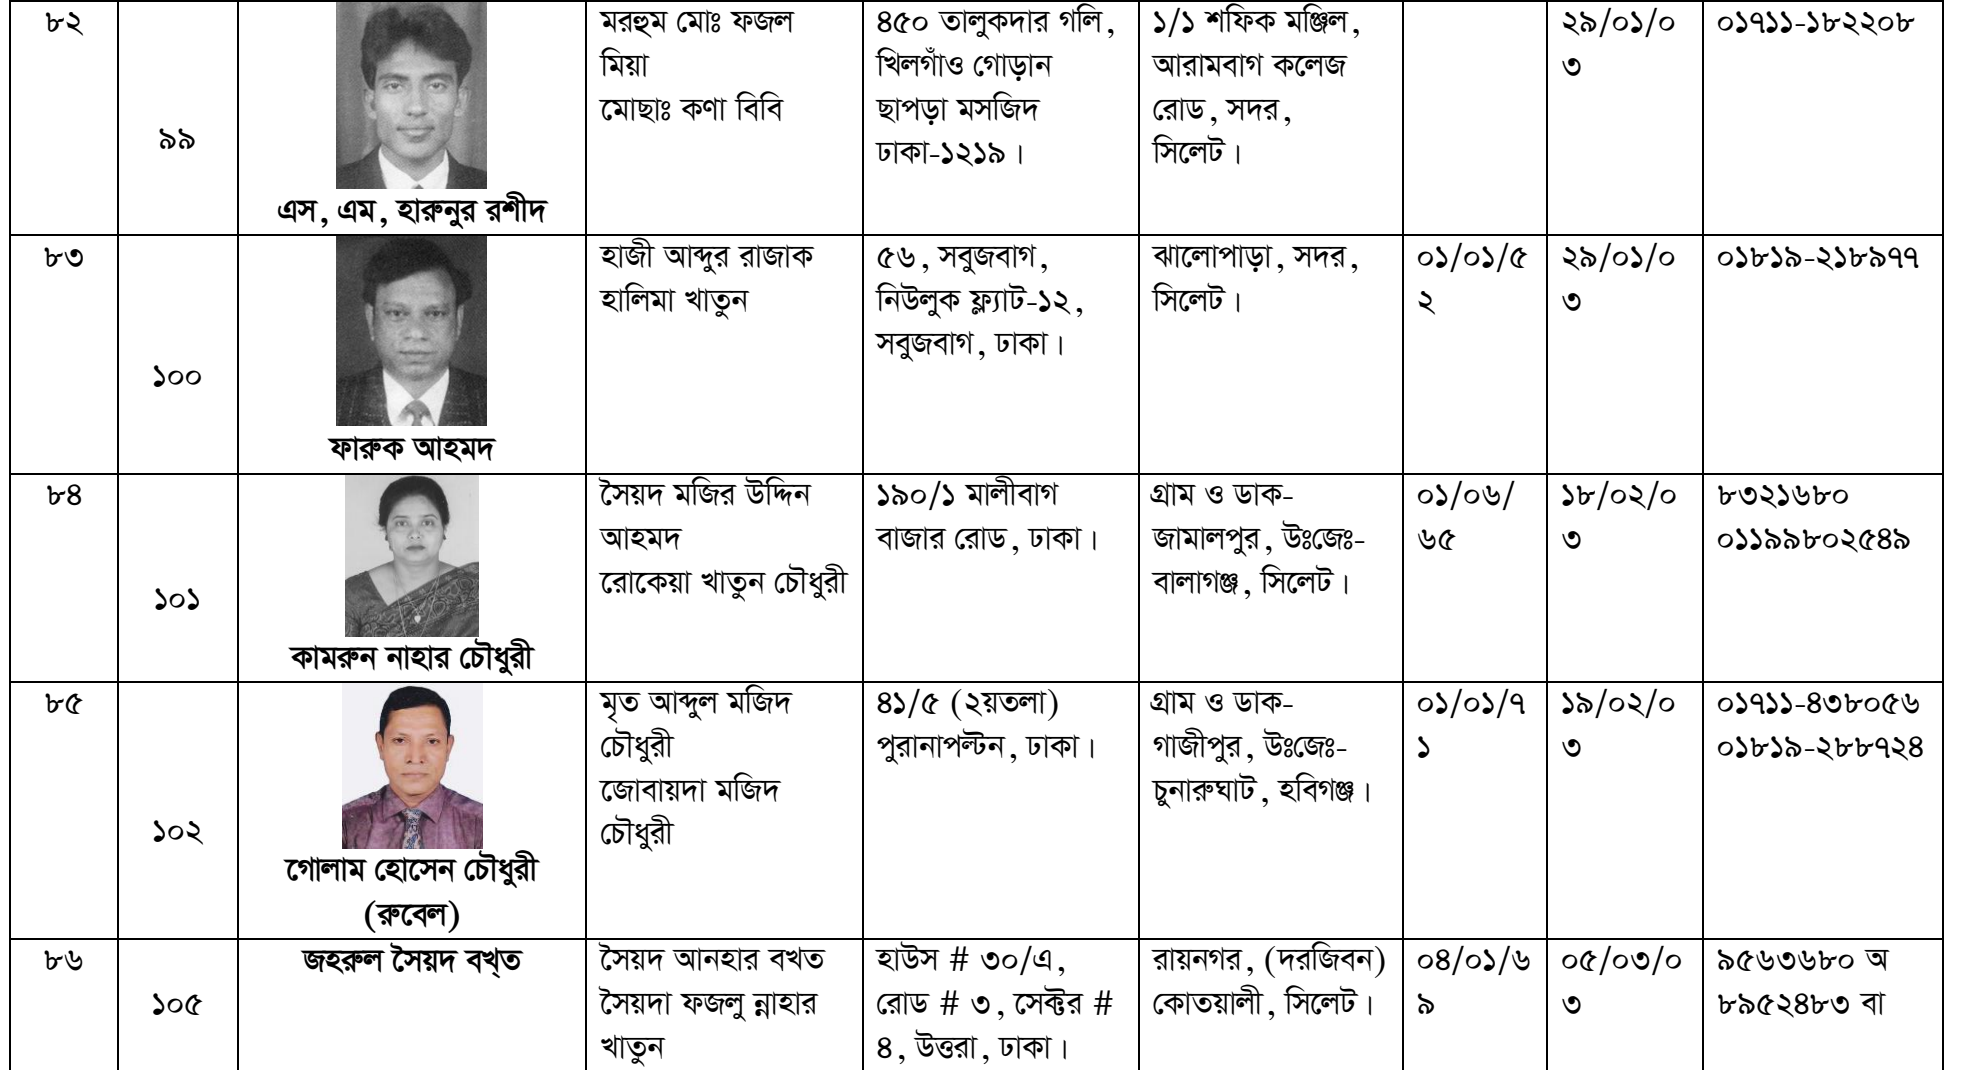 ৮২
৯৯
এস, এম, হারুনুর রশীদ
মরহুম মোঃ ফজল
মিয়া
মোছাঃ কণা বিবি
৪৫০ তালুকদার গলি,
খিলগাঁও গোড়ান
ছাপড়া মসজিদ
ঢাকা-১২১৯।
১/১ শফিক মঞ্জিল,
আরামবাগ কলেজ
রোড, সদর,
সিলেট।
২৯/০১/০
৩
০১৭১১-১৮২২০৮
৮৩
১০০
ফারুক আহমদ
হাজী আব্দুর রাজাক
হালিমা খাতুন
৫৬, সবুজবাগ,
নিউলুক ফ্ল্যাট-১২,
সবুজবাগ, ঢাকা।
ঝালোপাড়া, সদর,
সিলেট।
০১/০১/৫
২
২৯/০১/০
৩
০১৮১৯-২১৮৯৭৭
৮৪
১০১
কামরুন নাহার চৌধুরী
সৈয়দ মজির উদ্দিন
আহমদ
রোকেয়া খাতুন চৌধুরী
১৯০/১ মালীবাগ
বাজার রোড, ঢাকা।
গ্রাম ও ডাক-
জামালপুর, উঃজেঃ-
বালাগঞ্জ, সিলেট।
০১/০৬/
৬৫
১৮/০২/০
৩
৮৩২১৬৮০
০১১৯৯৮০২৫৪৯
৮৫
১০২
গোলাম হোসেন চৌধুরী
(রুবেল)
মৃত আব্দুল মজিদ
চৌধুরী
জোবায়দা মজিদ
চৌধুরী
৪১/৫ (২য়তলা)
পুরানাপল্টন, ঢাকা।
গ্রাম ও ডাক-
গাজীপুর, উঃজেঃ-
চুনারুঘাট, হবিগঞ্জ।
০১/০১/৭
১
১৯/০২/০
৩
০১৭১১-৪৩৮০৫৬
০১৮১৯-২৮৮৭২৪
৮৬
১০৫
জহরুল সৈয়দ বখ্ত
সৈয়দ আনহার বখত
সৈয়দা ফজলু ন্নাহার
খাতুন
হাউস # ৩০/এ,
রোড # ৩, সেক্টর #
৪, উত্তরা, ঢাকা।
রায়নগর, (দরজিবন)
কোতয়ালী, সিলেট।
০৪/০১/৬
৯
০৫/০৩/০
৩
৯৫৬৩৬৮০ অ
৮৯৫২৪৮৩ বা